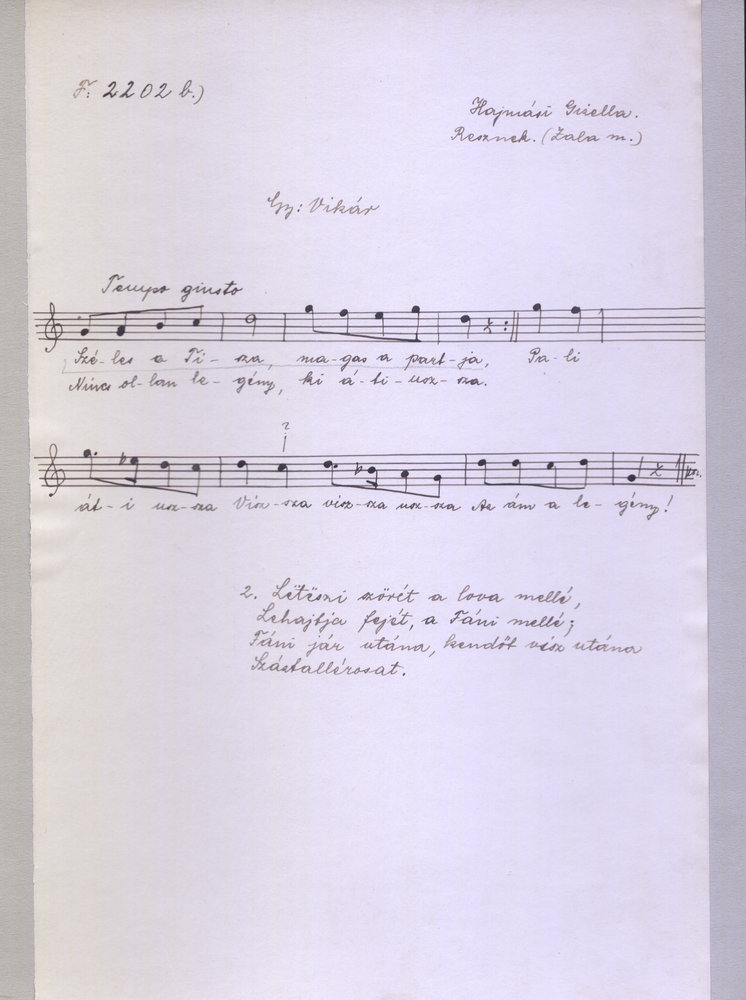 F. 2202 b.)
Hajmási Gizella.
Resznek. (Zala m.)
Gy: Vikár
Tempo giusto
Szé-les a Ti-sza, ma-gas a part-ja, Pa-li
Nincs ol-lan le-gény, ki á-ti-usz-sza.
?
át-i usz-sza Visz-sza visz-sza usz-sza Az ám a le-gény!
2. Lëtëszi szörét a lova mellé,
Lehajtja fejét, a Fáni mellé;
Fáni jár utána, kendőt visz utána
Szástallérosat.